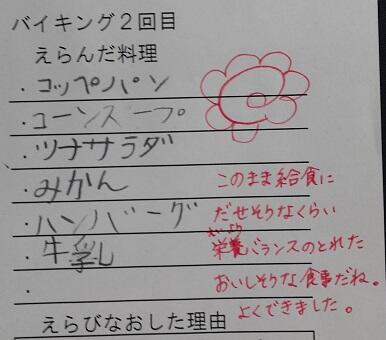 バイキング2回目
えらんだ料理
・コッペパン
・コーンスープ
・ツナサラダ
・みかん
・ハンバーグ
・牛乳
・
このまま給食に
だせそうなくらい
えいよう
栄養バランスのとれた
おいしそうな食事だね。
よくできました。
えらびなおした理由